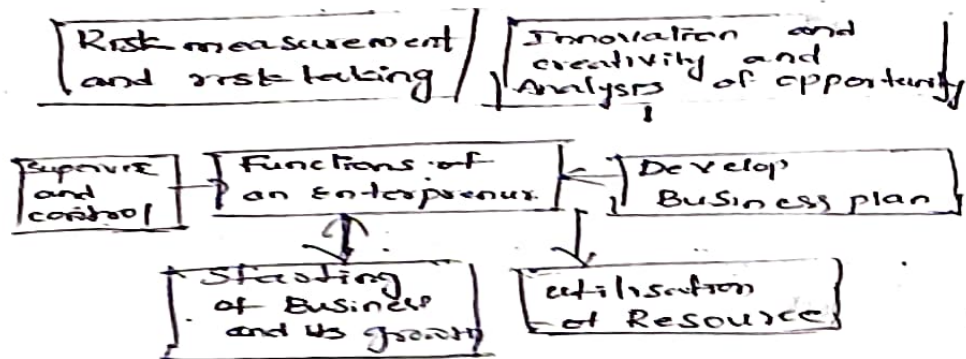 Risk measurement
and risk taking
Innovation and
creativity and
Analysis of opportunity
Supervise
and
control
Functions of
an Enterprenur.
Develop
Business plan
Starting
of Business
and its growth
utilisation
of Resource